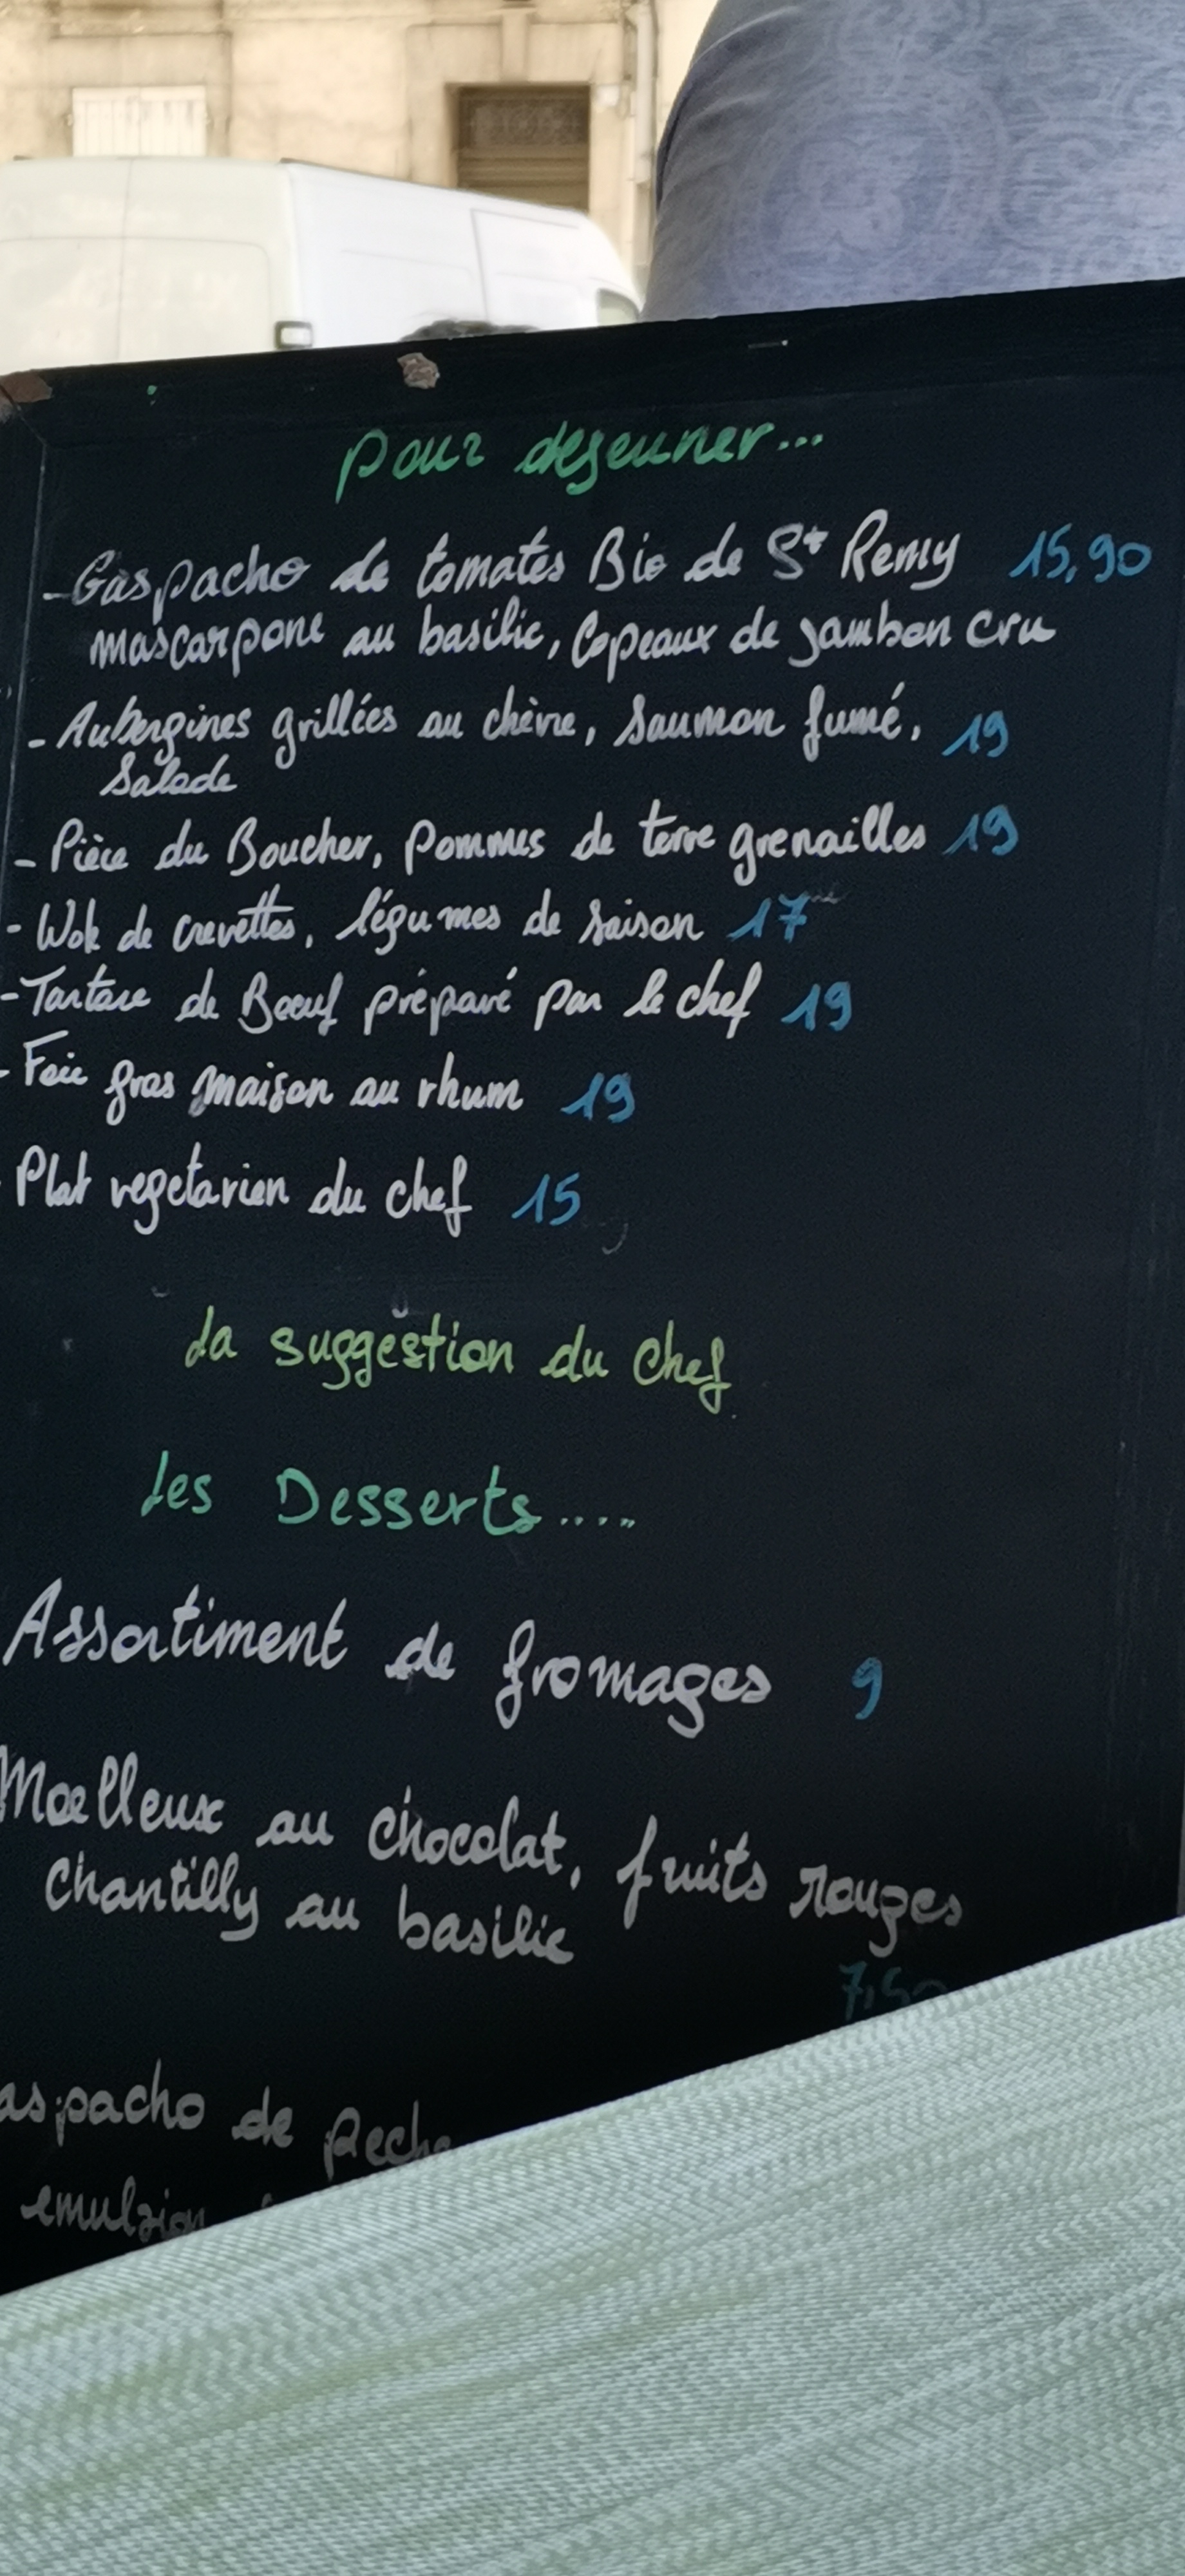 pour dejeuner...
- Gaspacho de tomates Bio de St Remy 15,90
mascarpone au basilic, Copeaux de jambon cru
- Aubergines grillées au chèvre, saumon fumé, 19
salade
- Pièce du Boucher, pommes de terre grenailles 19
- Wok de crevettes, légumes de saison 17
- Tartare de Boeuf préparé par le chef 19
- Foie gras maison au rhum 19
Plat vegetarien du chef 15
La suggestion du chef
Les Desserts.....
Assortiment de fromages 9
Moelleux au chocolat, fruits rouges
Chantilly au basilic
7,50
aspacho de peche
emulsion